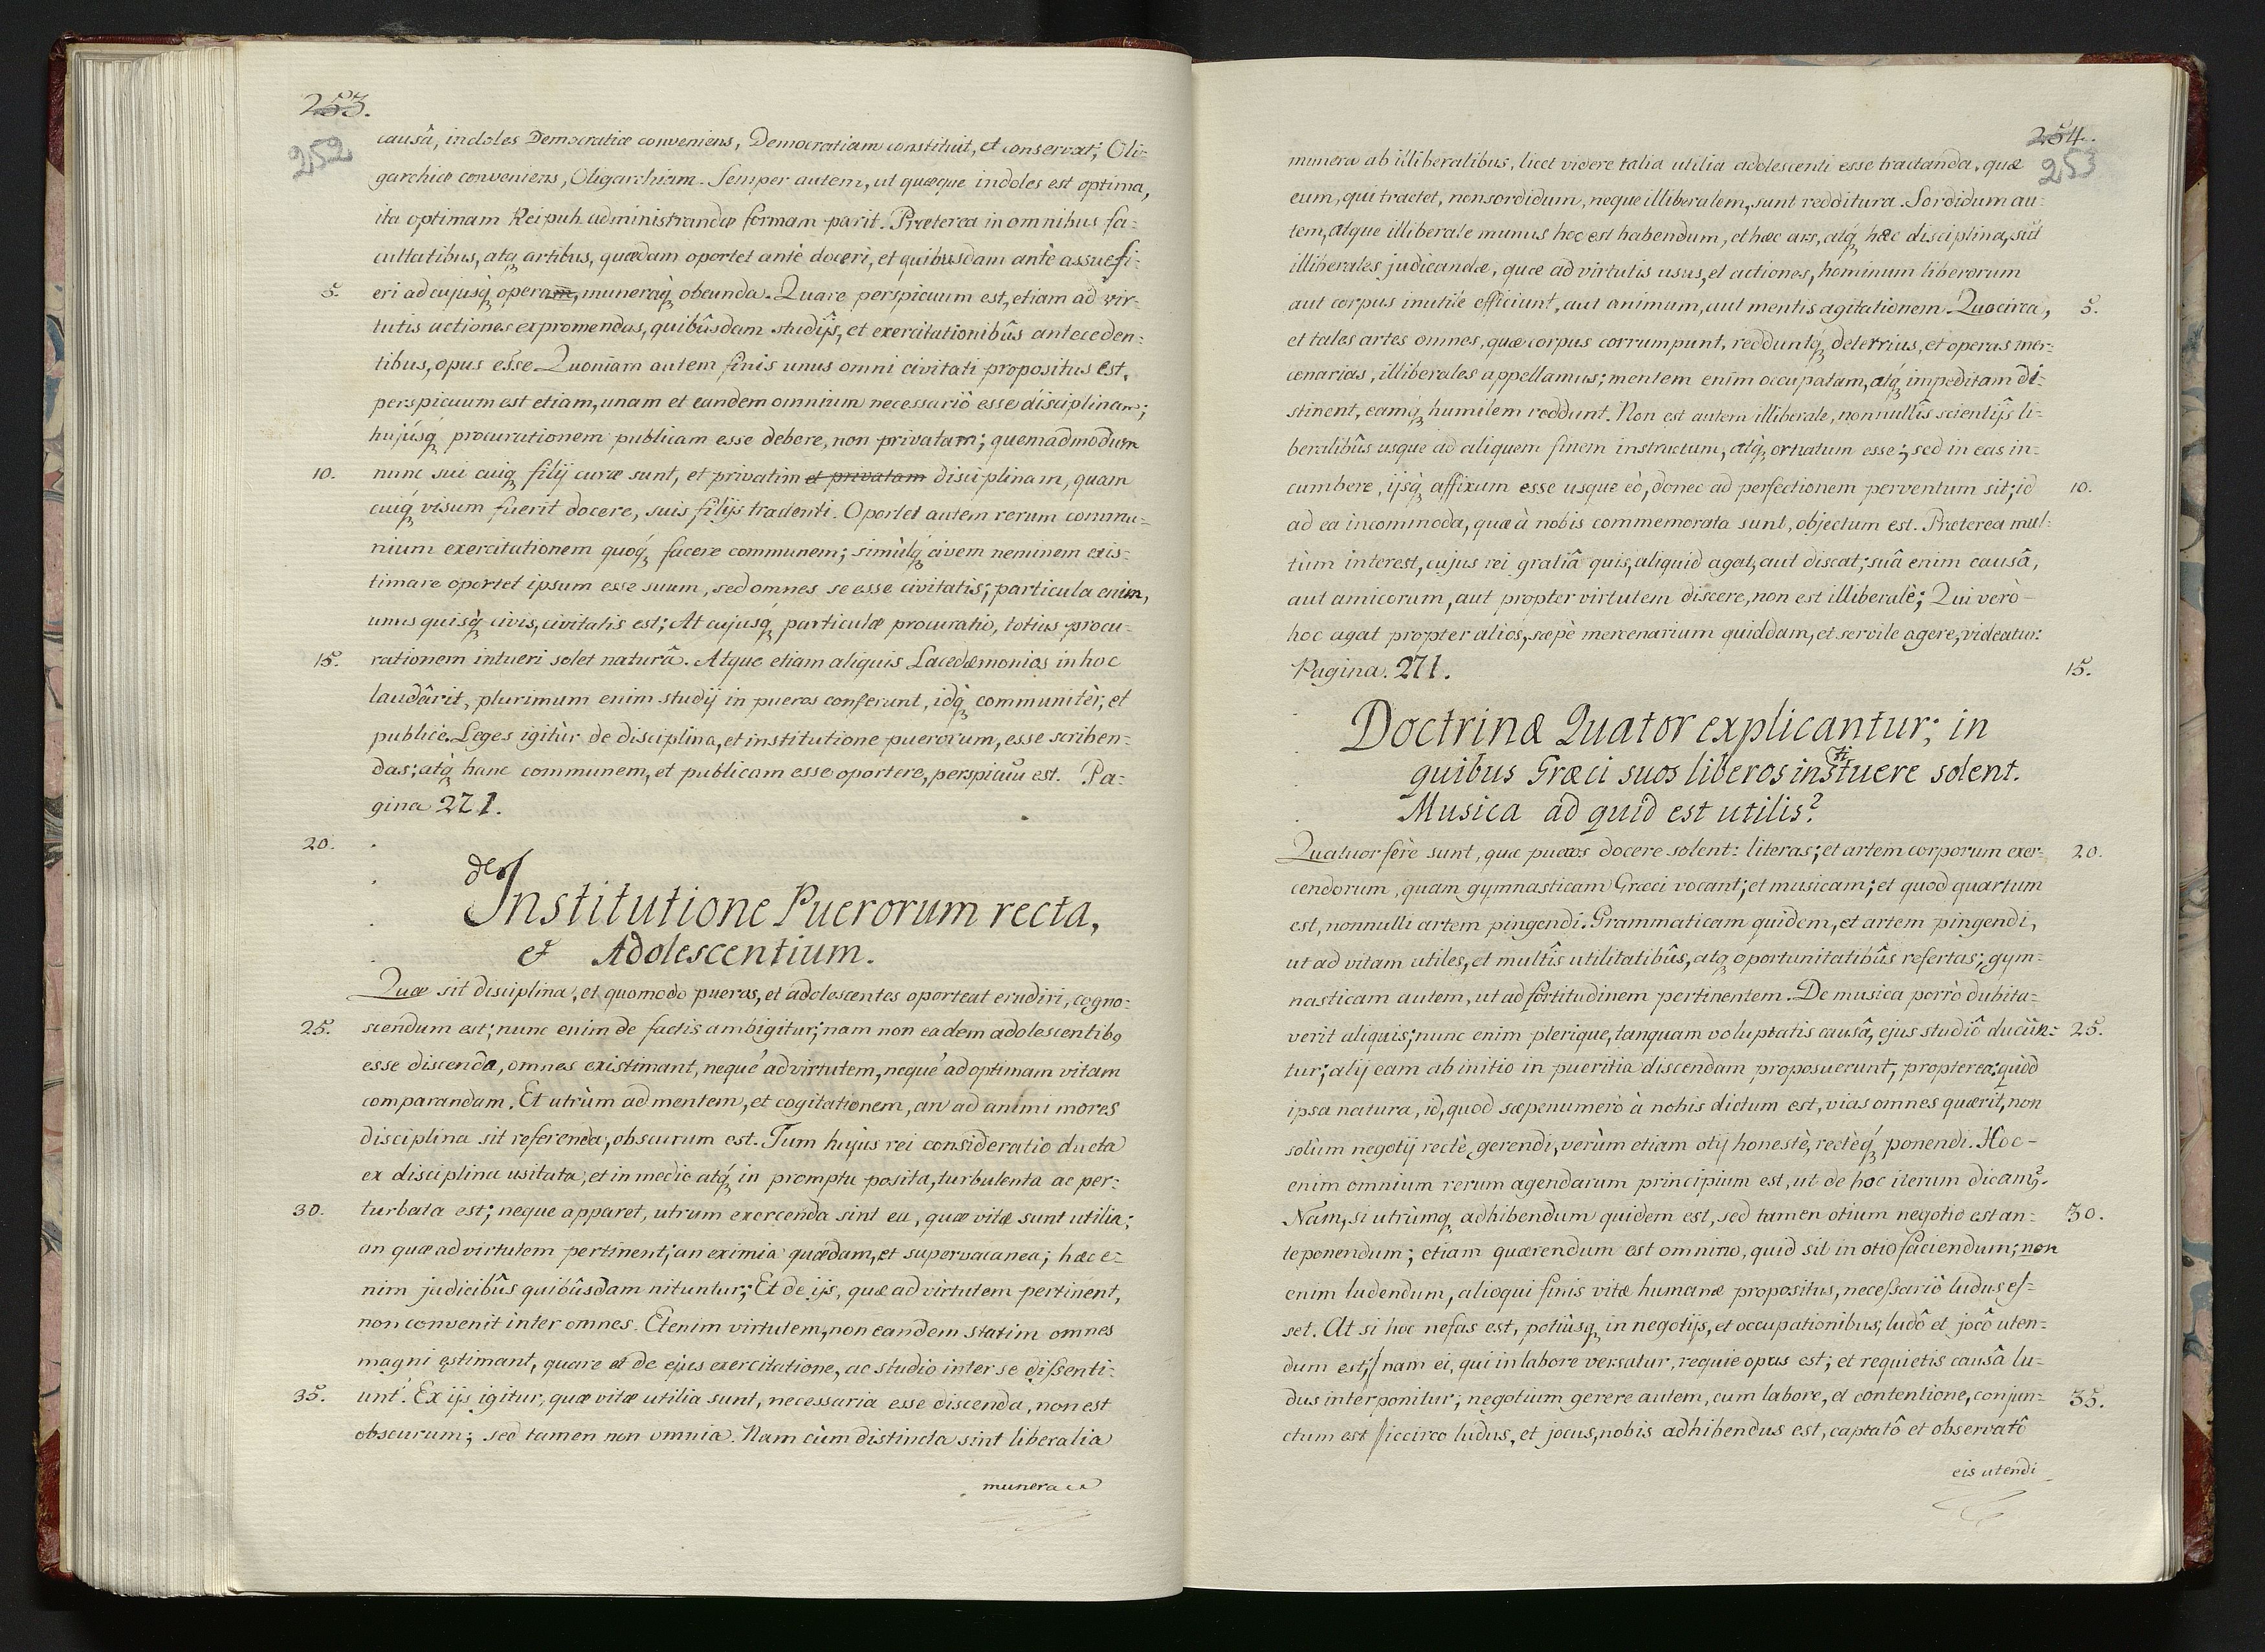 253.
252
causâ, indoles Democratiæ conveniens, Democratiam constituit, et conservat; Oli-
garchiæ conveniens, Oligarchiam. Semper autem, ut quæque indoles est optima,
ita optimam Reipub. administrandæ formam parit. Præterea in omnibus fa-
cultatibus, atq; artibus, quædam oportet antè doceri, et quibusdam antè assuefi-
5. eri ad cujusq; operam, muneraq; obeunda. Quare perspicuum est, etiam ad vir-
tutis actiones expromendas, quibûsdam studijs, et exercitationibûs anteceden-
tibus, opus esse. Quoniam autem finis unus omni civitati propositus est,
perspicuum est etiam, unam et eandem omnium necessariò esse disciplinam;
hujúsq; procurationem publicam esse debere, non privatam; quemadmodum
10. nunc sui cuiq; filij curæ sunt, et privatim et privatam disciplinam, quam
cuiq; visum fuerit docere, suis filijs tradenti. Oportet autem rerum commu-
nium exercitationem quoq; facere communem; simùlq; civem neminem exis-
timare oportet ipsum esse suum, sed omnes se esse civitatis; particula enim,
unus quisq; civis, civitatis est; At cujusq; particulæ procuratio, totius procu-
15. rationem intueri solet naturâ. Atque etiam aliquis Lacedæmonios in hoc
laudârit, plurimum enim studij in pueros conferunt, idq; communitèr, et
publicè. Leges igitùr de disciplina, et institutione puerorum, esse scriben-
das; atq; hanc communem, et publicam esse oportere, perspicuũ est. Pa-
gina 271.
20.
de Institutione Puerorum recta,
et Adolescentium.
Quæ sit disciplina, et quomodo pueros, et adolescentes oporteat erudiri, cogno-
25. scendum est; nunc enim de factis ambigitur; nam non eadem adolescentibꝰ
esse discenda, omnes existimant, neque ad virtutem, neque ad optimam vitam
comparandam. Et utrùm ad mentem, et cogitationem, an ad animi mores
disciplina sit referenda, obscurum est. Tum hujus rei consideratio ducta
ex disciplina usitata, et in medio atq; in promptu posita, turbulenta ac per-
30. turbata est; neque apparet, utrum exercenda sint ea, quæ vitæ sunt utilia;
an quæ ad virtutem pertinent; an eximia quædam, et supervacanea; hæc e-
nim judicibûs quibûsdam nituntur; Et de ijs, quæ ad virtutem pertinent,
non convenit inter omnes. Etenim virtutem, non eandem statim omnes
magni ęstimant, quare et de ejus exercitatione, ac studio inter se dissenti-
35. unt. Ex ijs igitur, quæ vitæ utilia sunt, necessaria esse discenda, non est
obscurum; sed tamen non omnia. Nam cùm distincta sint liberalia
munera
254.
253
munera ab illiberalibus, licet videre talia utilia adolescenti esse tractanda, quæ
eum, qui tractet, non sordidum, neque illiberalem, sunt redditura. Sordidum au-
tem, atque illiberale munus hoc est habendum, et hæc ars, atq; hæc disciplina, sũt
illiberales judicandæ, quæ ad virtutis usus, et actiones, hominum liberorum
aut corpus inutile efficiunt, aut animum, aut mentis agitationem. Quocirca, 5.
et tales artes omnes, quæ corpus corrumpunt, redduntq; deterrius, et operas mer-
cenarias, illiberales appellamus; mentem enim occupatam, atq; impeditam di-
stinent, eamq; humilem reddunt. Non est autem illiberale, nonnullîs scientijs li-
beralibûs usque ad aliquem finem instructum, atq; ornatum esse; sed in eas in-
cumbere, ijsq; affixum esse usque eò, donec ad perfectionem perventum sit; id 10.
ad ea incommoda, quæ à nobis commemorata sunt, objectum est. Præterea mul-
tùm interest, cujus rei gratiâ quis, aliquid agat, aut discat; suâ enim causâ,
aut amicorum, aut propter virtutem discere, non est illiberalè; Qui verò
hoc agat propter alios, sæpè mercenarium quiddam, et servile agere, videatur.
Pagina. 271. 15.
Doctrinæ Quator explicantur; in
quibus Græci suos liberos instituere solent.
Musica ad quid est utilis?
Quatuor ferè sunt, quæ pueros docere solent: literas; et artem corporum exer- 20.
cendorum, quam gymnasticam Græci vocant; et musicam; et quod quartum
est, nonnulli artem pingendi. Grammaticam quidem, et artem pingendi,
ut ad vitam utiles, et multîs utilitatibûs, atq; oportunitatibûs refertas; gym-
nasticam autem, ut ad fortitudinem pertinentem. De musica porrò dubita-
verit aliquis; nunc enim plerique, tanquam voluptatis causâ, ejus studiô ducũn- 25.
tur; alij eam ab initio in pueritia discendam proposuerunt, propterea quòd
ipsa natura, id, quod sæpenumerò à nobis dictum est, vias omnes quærit, non
solùm negotij rectè gerendi, verùm etiam otij honestè, rectèq; ponendi. Hoc
enim omnium rerum agendarum principium est, ut de hoc iterum dicamꝰ.
Nam, si utrùmq; adhibendum quidem est, sed tamen otium negotio est an- 30.
teponendum; etiam quærendum est omnino, quid sit in otio faciendum; non
enim ludendum, alioqui finis vitæ humanæ propositus, necessariò ludus es-
set. At si hoc nefas est, potiùsq; in negotijs, et occupationibus, ludô et jocô uten-
dum est; nam ei, qui in labore versatur, requie opus est; et requietis causâ lu-
dus interponitur; negotium gerere autem, cum labore, et contentione, conjun- 35.
ctum est iccirco ludus, et jocus, nobis adhibendus est, captatô et observatô
eis utendi